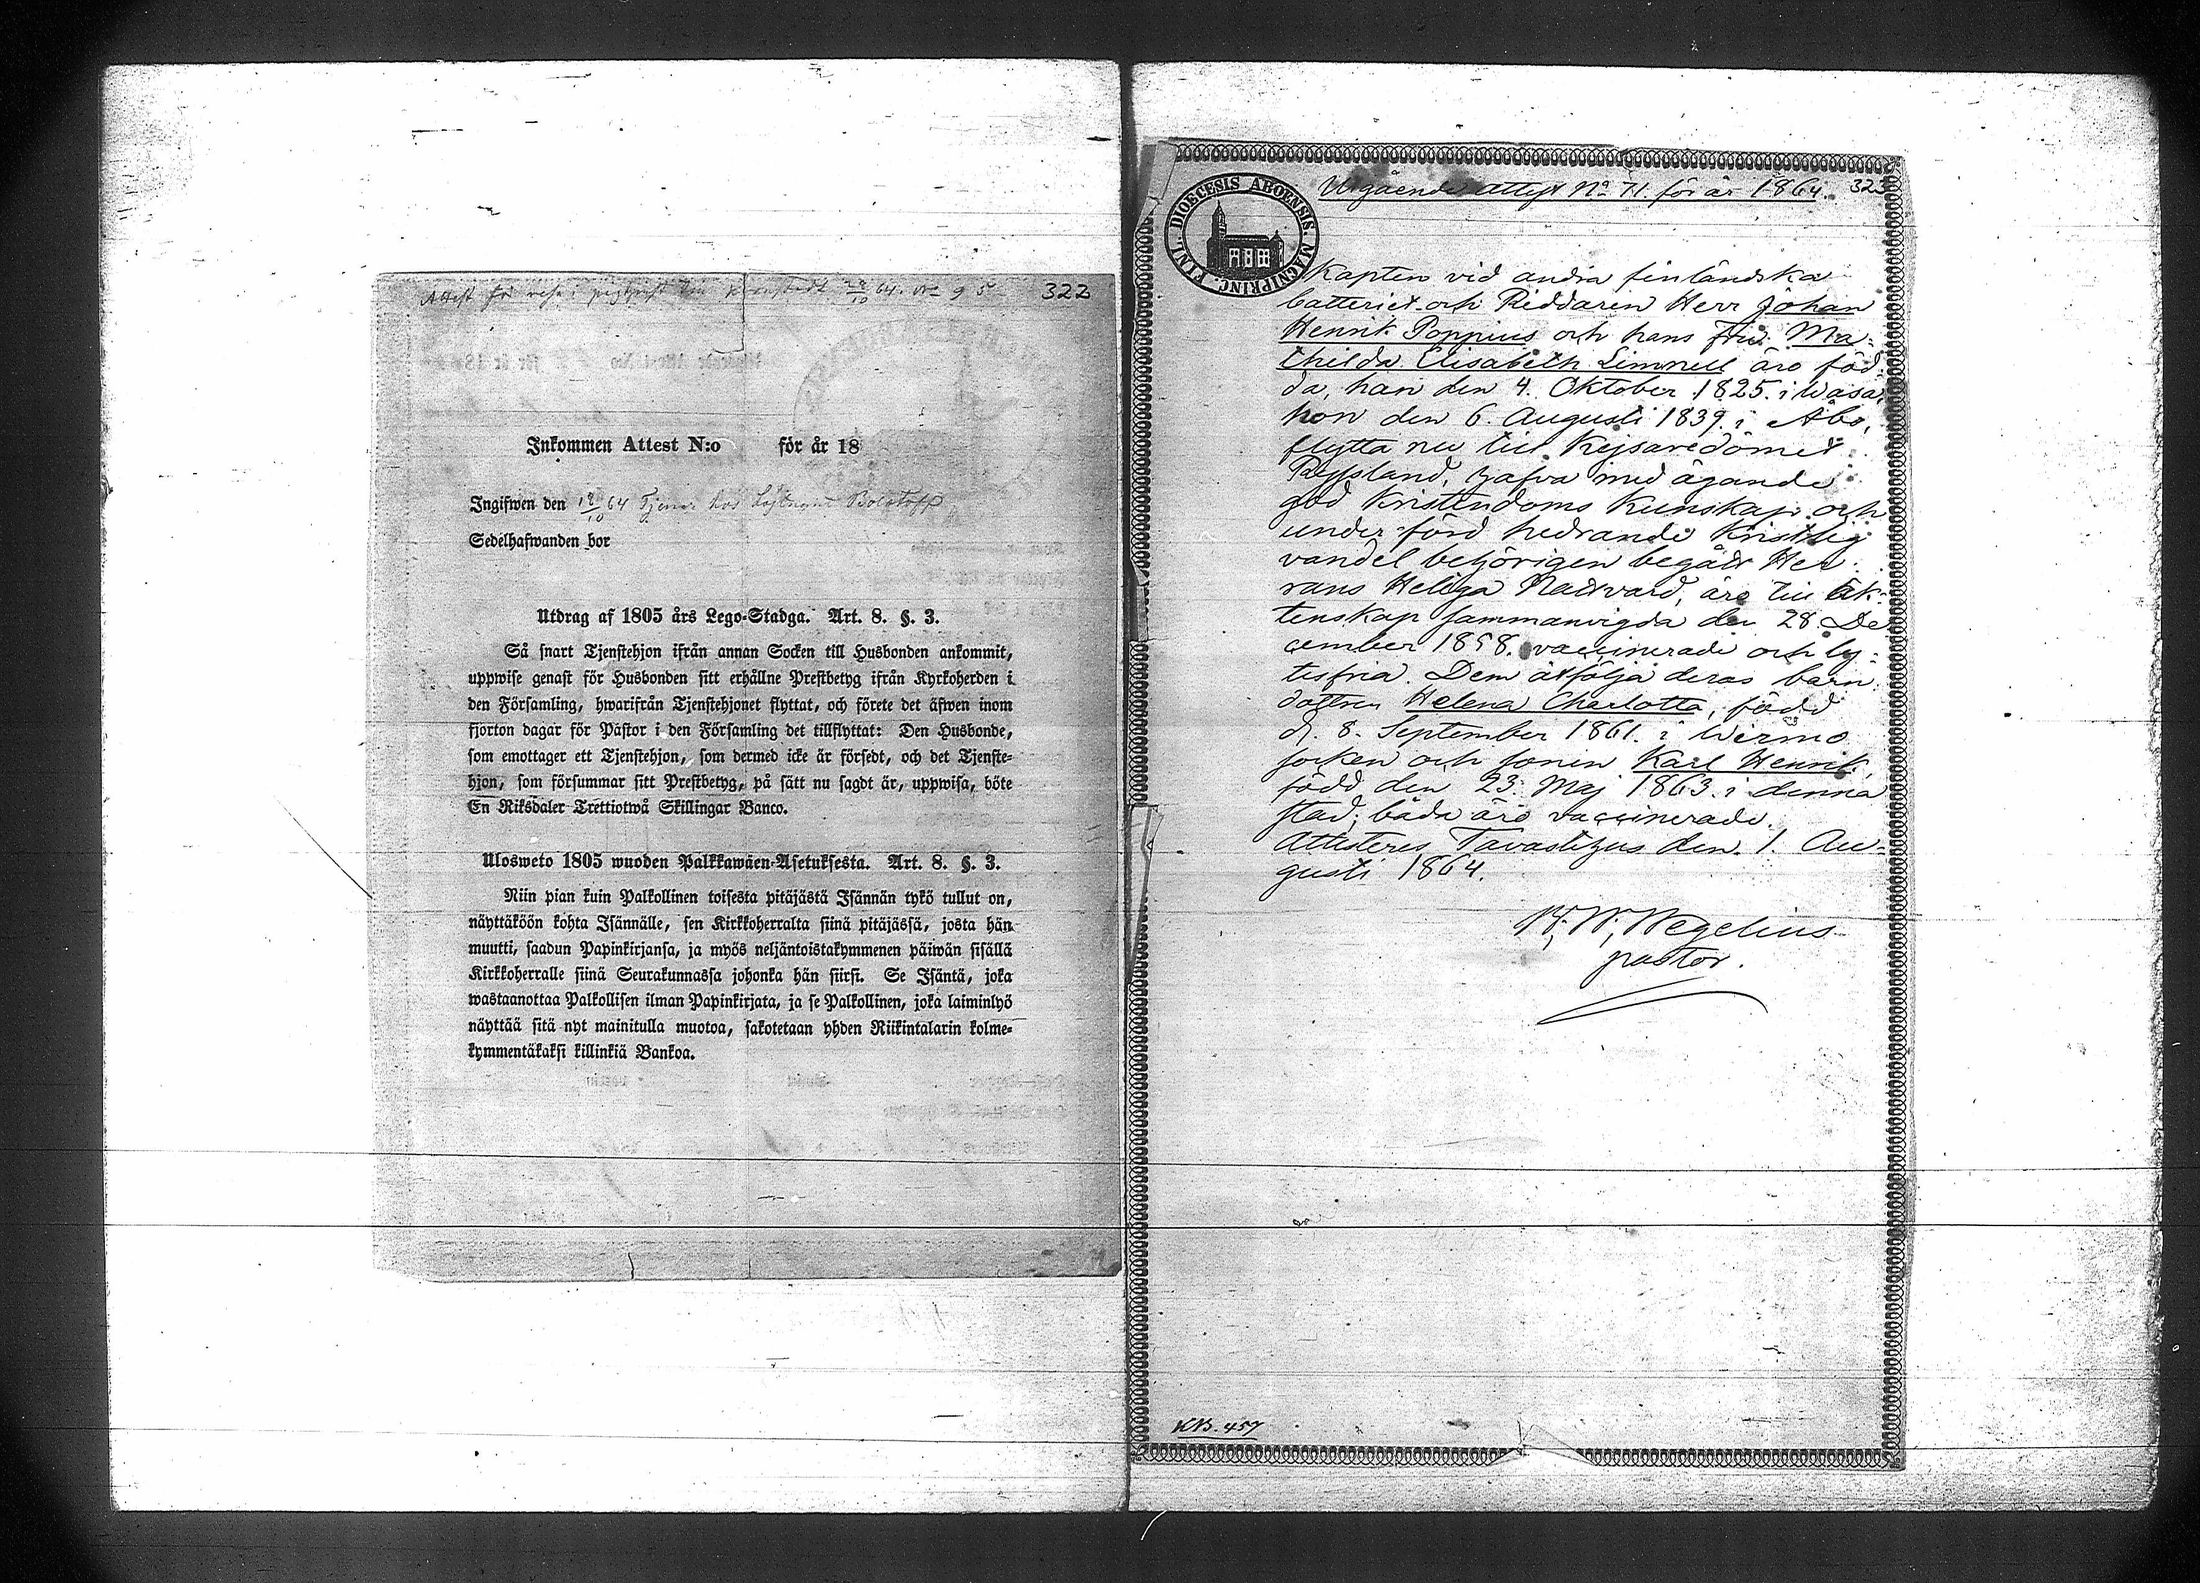 Attest för resa i pastpust till Kronstadt 28/10 64. No 95
322
Inkommen Attest N:o för år 18
Ingifwen den 18/10 64 Tjenar hos Löjtnant Bolotoff
Sedelhafwanden bor
Utdrag af 1805 års Lego-Stadga. Art. 8. §. 3.
Så snart Tjenstehjon ifrån annan Socken till Husbonden ankommit,
uppwise genast för Husbonden sitt erhållne Prestbetyg ifrån Kyrkoherden i
den Församling, hwarifrån Tjenstehjonet flyttat, och förete det äfwen inom
fjorton dagar för Pastor i den Församling det tillflyttat: Den Husbonde,
som emottager ett Tjenstehjon, som dermed icke är försedt, och det Tjenste-
hjon, som försummar sitt Prestbetyg, på sätt nu sagdt är, uppwisa, böte
En Riksdaler Trettiotwå Skillingar Banco.
Ulosweto 1805 wuoden Palkkawäen-Asetuksesta. Art. 8. §. 3.
Niin pian kuin Palkollinen toisesta pitäjästä Isännän tykö tullut on,
näyttäköön kohta Isännälle, sen Kirkkoherralta siinä pitäjässä, josta hän
muutti, saadun Papinkirjansa, ja myös neljäntoistakymmenen päiwän sisällä
Kirkkoherralle siinä Seurakunnassa johonka hän siirsi. Se Isäntä, joka
wastaanottaa Palkollisen ilman Papinkirjata, ja se Palkollinen, joka laiminlyö
näyttää sitä nyt mainitulla muotoa, sakotetaan yhden Riikintalarin kolme-
kymmentäkaksi killinkiä Bankoa.
DIOECESIS ABOENSIS. MAGNIPRINC. FINL.
Utgående attest No 71. för år 1864. 323
Kapten vid andra finländska
batteriet och Riddaren Herr Johan
Henrik Poppius och hans Fru Ma-
thilda Elisabeth Limnell äro föd-
da, han den 4. Oktober 1825. i Wasa,
hon den 6. Augusti 1839. i Åbo,
flytta nu till Kejsaredömet
Ryssland, hafva med ägande
god Kristendoms kunskap och
under förd hedrande Kristlig
vandel behörigen begått Her-
rans Heliga Nattvard, äro till äk-
tenskap sammanvigda den 28 De
cember 1858. vaccinerade och ly-
tesfria. Dem åtfölja deras barn
dottren Helena Charlotta, född
d. 8. September 1861. i Wirmo
socken och sonen Karl Henrik,
född den 23. Maj 1863. i denna
stad; båda äro vaccinerade.
Attesteres Tavastehus den 1. Au-
gusti 1864.
W. W. Wegelius
pastor.
KB. 457